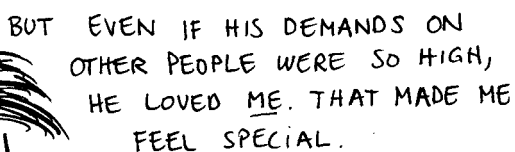 BUT EVEN IF HIS DEMANDS ON
OTHER PEOPLE WERE SO HIGH,
HE LOVED ME. THAT MADE ME
FEEL SPECIAL.